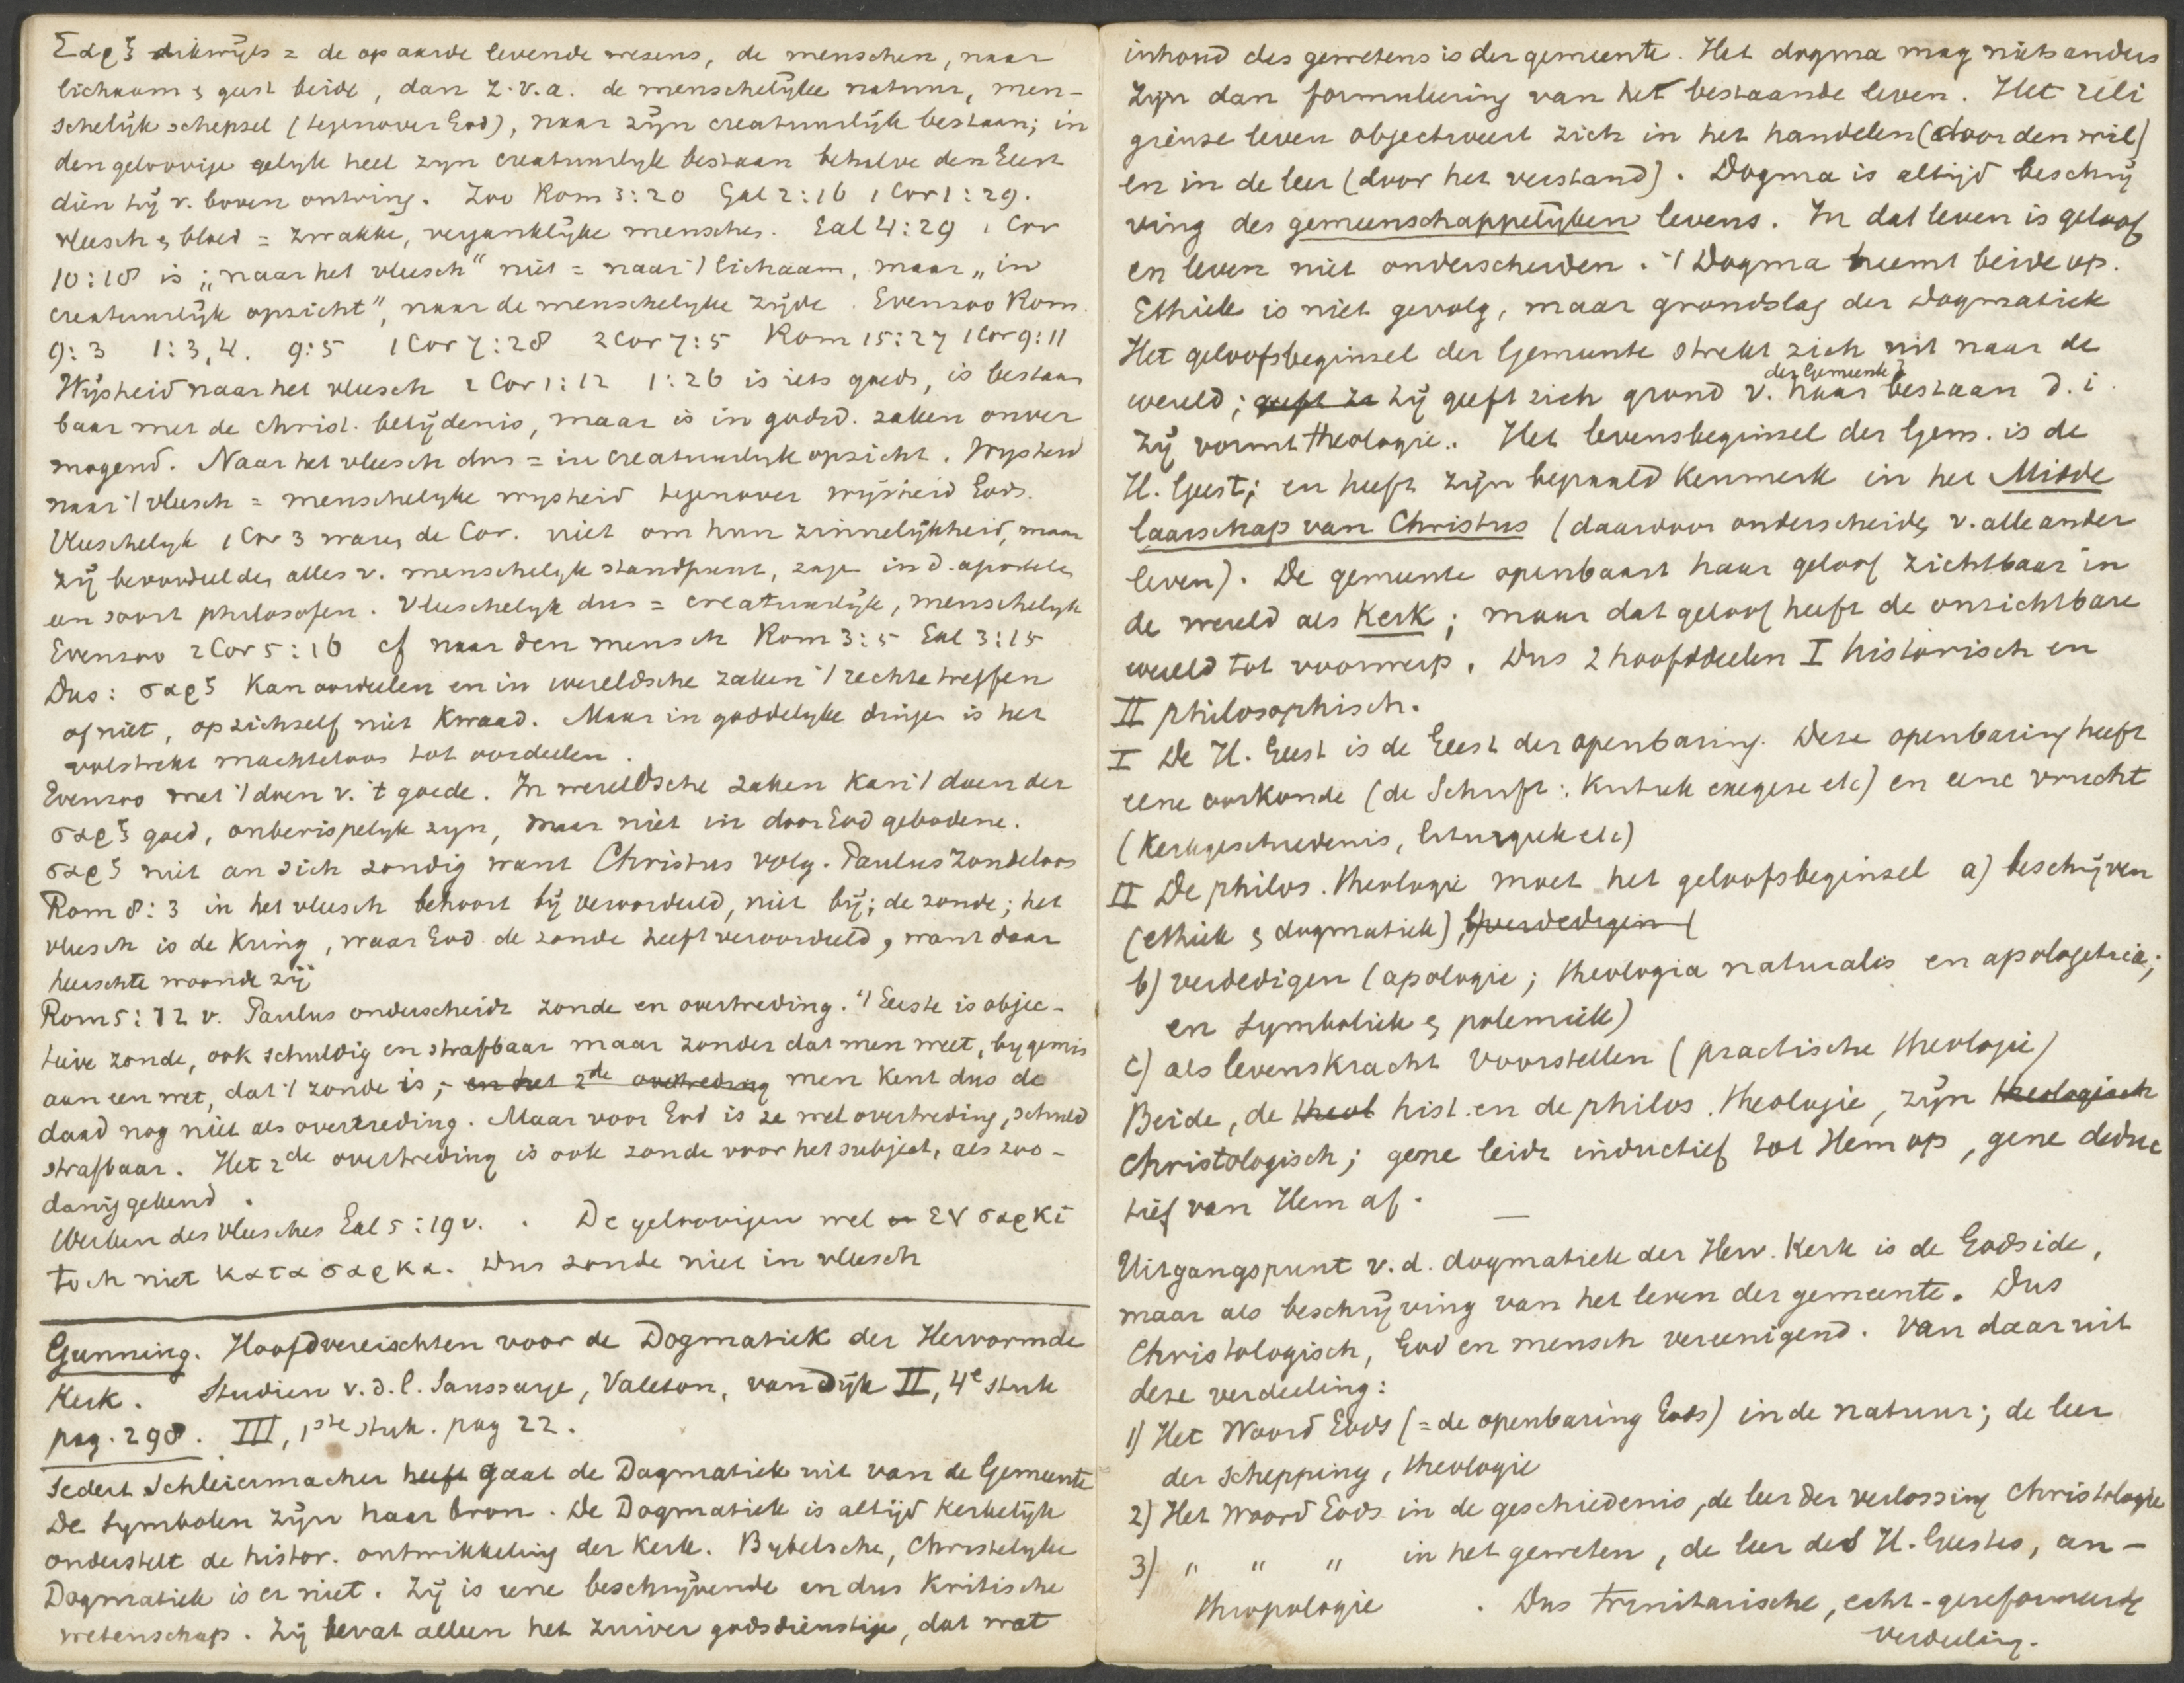 Σαρξ dikwijls = de op aarde levende wezens, de menschen, naar
lichaam & geest beide, dan z.v.a. de menschelijke natuur, men-
schelijk schepsel (tegenover God), naar zijn creatuurlijk bestaan; in
den geloovige gelijk heel zyn creatuurlyk bestaan behalve den Geest
dien hij v. boven ontving. Zoo Rom 3:20 Gal 2:16 1 Cor 1:29.
vleesch & bloed = zwakke, vergankelijke menschen. Gal 4:29 1 Cor
10:18 is „naar het vleesch" niet = naar 't lichaam, maar „in
creatuurlijk opzicht", naar de menschelyke zijde. Evenzoo Rom.
9:3 1:3,4. 9:5 1 Cor 7:28 2 Cor 7:5 Rom 15:27 1 Cor 9:11
Wijsheid naar het vleesch 2 Cor 1:12 1:26 is iets goeds, is bestaan
baar met de christ. belijdenis, maar is in godsd. zaken onver
mogend. Naar het vleesch dus = in creatuurlyk opzicht. Wysheid
naar 't vleesch = menschelyke wysheid tegenover wijsheid Gods.
Vleeschelyk 1 Cor 3 waren de Cor. niet om hun zinnelijkheid, maar
zij beoordeelden alles v. menschelyk standpunt, zagen in d. apostelen
een soort philosofen. Vleeschelyk dus = creatuurlijk, menschelyk
Evenzoo 2 Cor 5:16 cf naar den mensch Rom 3:5 Gal 3:15
Dus: σαρξ kan oordeelen en in wereldsche zaken 't rechte treffen
of niet, op zichzelf niet kwaad. Maar in goddelyke dingen is het
volstrekt machteloos tot oordeelen.
Evenzoo met 't doen v. 't goede. In wereldsche zaken kan 't doen der
σαρξ goed, onberispelyk zyn, maar niet in door God gebodene.
σαρξ niet an sich zondig want Christus volg. Paulus zondeloos
Rom 8:3 in het vleesch behoort bij veroordeeld, niet bij; de zonde; het
vleesch is de kring, waar God de zonde heeft veroordeeld, want daar
heerschte woonde zij
Rom 5:12 v. Paulus onderscheidt zonde en overtreding. 't Eerste is objec-
tieve zonde, ook schuldig en strafbaar maar zonder dat men weet, by gemis
aan een wet, dat 't zonde is; en het 2de overtreding men kent dus de
daad nog niet als overtreding. Maar voor God is ze wel overtreding, schuld
strafbaar. Het 2de overtreding is ook zonde voor het subject, als zoo-
danig gekend.
Werken des vleesches Gal 5:19 v. . De geloovigen wel εν σαρκι
toch niet κατα σαρκα. Dus zonde niet in vleesch
Gunning. Hoofdvereischten voor de Dogmatiek der Hervormde
Kerk. Studien v. d. l. Saussaye, Valeton, van Dijk II, 4e stuk
pag. 298. III, 1ste stuk. pag 22.
Sedert Schleiermacher heeft gaat de Dogmatiek uit van de Gemeente
De Symbolen zijn haar bron. De Dogmatiek is altijd kerkelijk
onderstelt de histor. ontwikkeling der Kerk. Bybelsche, Christelyke
Dogmatiek is er niet. Zij is eene beschrijvende en dus kritische
wetenschap. Zij bevat alleen het zuiver godsdienstige, dat wat
inhoud des gewetens is der gemeente. Het dogma mag niets anders
zijn dan formuleering van het bestaande leven. Het reli
gieuse leven objectiveert zich in het handelen (door den wil)
en in de leer (door het verstand). Dogma is altijd beschrij
ving des gemeenschappelijken levens. In dat leven is geloof
en leven niet onderscheiden. 't Dogma neemt beide op.
Ethiek is niet gevolg, maar grondslag der Dogmatiek
Het geloofsbeginsel der Gemeente strekt zich uit naar de
wereld; geeft ze zij geeft zich grond v. haar der Gemeente bestaan d.i.
zij vormt theologie. Het levensbeginsel der Gem. is de
H. Geest; en heeft zijn bepaald kenmerk in het Midde
laarschap van Christus (daardoor onderscheiden v. alle ander
leven). De gemeente openbaart haar geloof zichtbaar in
de wereld als Kerk; maar dat geloof heeft de onzichtbare
wereld tot voorwerp. Dus 2 hoofddeelen I historisch en
II philosophisch.
I De H. Geest is de Geest der openbaring. Deze openbaring heeft
eene oorkonde (de Schrift: kritiek exegese etc) en eene vrucht
(Kerkgeschiedenis, liturgiek etc)
II De philos. theologie moet het geloofsbeginsel a) beschrijven
(ethiek & dogmatiek) b) verdedigen (
b) verdedigen (apologie; theologia naturalis en apologetica;
en Symboliek & polemiek)
c) als levenskracht voorstellen (practische theologie)
Beide, de theol hist. en de philos. theologie, zijn theologisch
Christologisch; gene leidt inductief tot Hem op, gene deduc
tief van Hem af.
—
Uitgangspunt v. d. dogmatiek der Herv. Kerk is de Godsidee,
maar als beschrijving van het leven der gemeente. Dus
Christologisch, God en mensch vereenigend. Van daaruit
deze verdeeling:
1) Het Woord Gods (= de openbaring Gods) in de natuur; de leer
der schepping, theologie
2) Het Woord Gods in de geschiedenis, de leer der verlossing Christologie
3) " " " in het geweten, de leer des H. Geestes, an-
thropologie . Dus trinitarische, echt-gereformeerde
verdeeling.